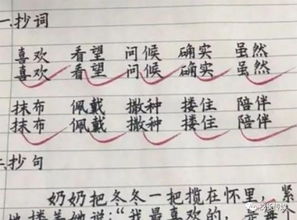 一.抄词
喜欢 看望 问候 确实 虽然
喜欢 看望 问候 确实 虽然
抹布 佩戴 撒种 搂住 陪伴
抹布 佩戴 撒种 搂住 陪伴
二.抄句
奶奶把冬冬一把揽在怀里，紧
地搂着她说：“我最喜欢的，是